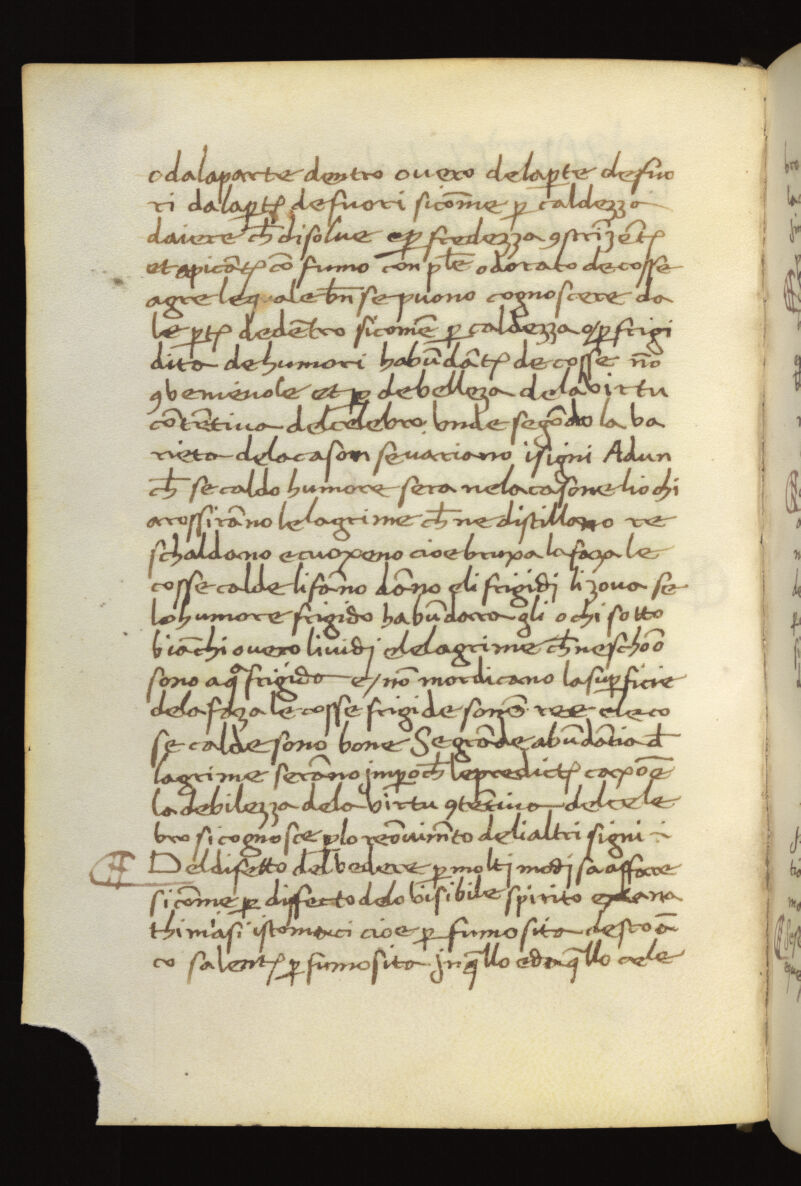 o dalaparte dentro overo delaꝑte defuo
ri dalaꝑtꝭ defuori sicom̄e ꝑ caldezza
daiere ch̄ disolve oꝑ fredezza ꝯstrīzentꝭ
et apicātꝭ cō fumo con ple odorato decosse
agre lequale bn̄ se puono cognoscere da
le ꝑtꝭ dedētro sicomē ꝑ caldezza o ꝑ frigi
dita dehumori habūdātꝭ decosse nō
ꝯvenievole et ꝑ debelleza dela virtu
cōtētiva del celebro. Unde segōdo la va
rieta dela cason sevariano i signi Adun
ch̄ se caldo humore sera nela casone li ochi
arossirāno le lagrime ch̄ ne distillano re
schaldano e cuoxeno cioe bruxa la faza le
cosse calde li fāno dāno eli frigidj li zova se
lo humore frigido habūdara gli ochi sotto
biāchi overo lividj ele lagrime ch̄ neschōo
sono aq̄ frigida e nō mordicano la suꝑficie
dela faza le cosse frigide sonō ree ele co
se calde sono bone Se grāde abūdātia d̄
lagrime serāno jmꝑoch̄ le predictꝭ caxōē
la debilezza dela virtu ꝯtētiva del cele
bro si cognosce ꝑ lo reōvimēto deli altri signi
Del difetto del vedere ꝑ molti modi sa affare
sicōme ꝑ diffecto delo visibile spirito e
ꝑ fumosita destōā
co salentꝭ ꝑ fumosita jn q̄llo eda q̄llo cele